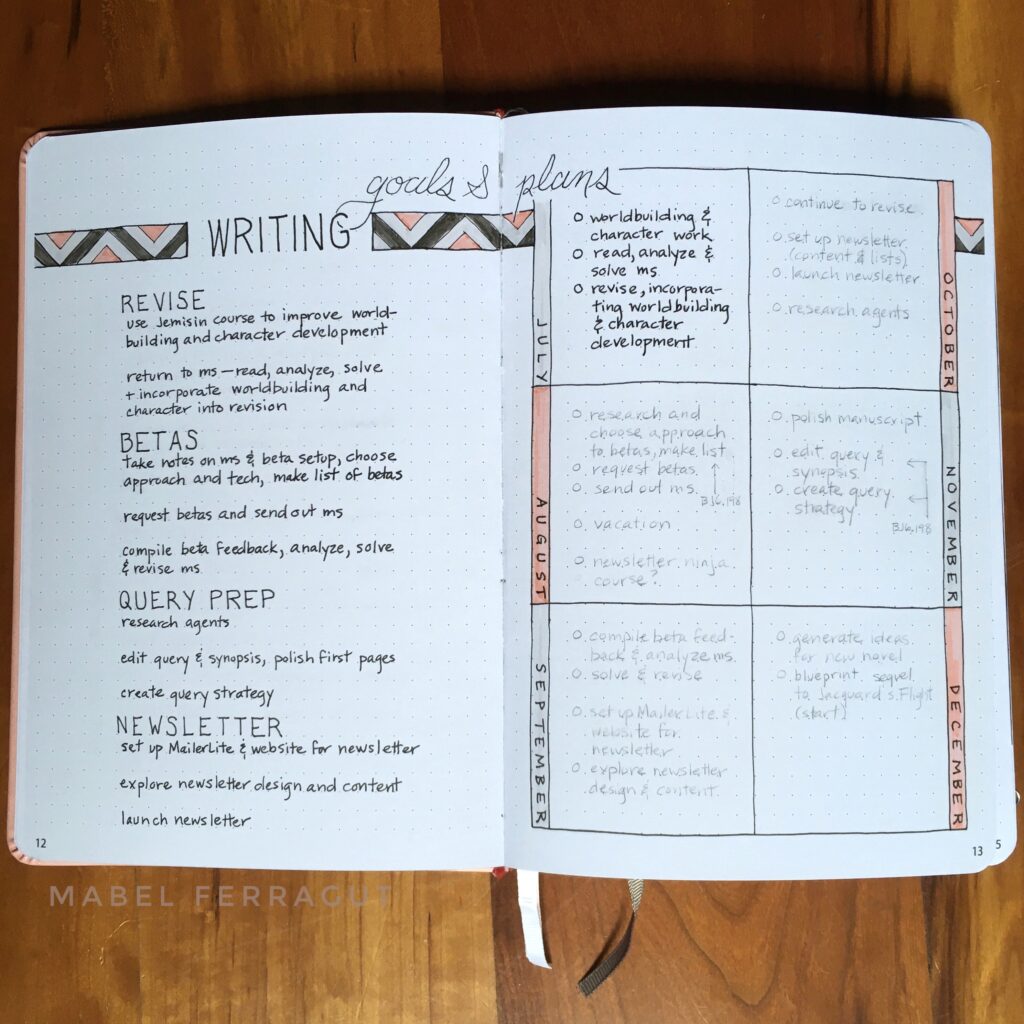 WRITING goals & plans
REVISE
use Jemisin course to improve world-
building and character development
return to ms — read, analyze, solve
+ incorporate worldbuilding and
character into revision
BETAS
take notes on ms & beta setup, choose
approach and tech, make list of betas
request betas and send out ms
compile beta feedback, analyze, solve
& revise ms
QUERY PREP
research agents
edit query & synopsis, polish first pages
create query strategy
NEWSLETTER
set up MailerLite & website for newsletter
explore newsletter design and content
launch newsletter
12
JULY
worldbuilding &
character work
read, analyze &
solve ms
revise, incorpora-
ting worldbuilding
& character
development
AUGUST
research and
choose approach
to betas, make list
request betas
send out ms
BJ6, 198
vacation
newsletter ninja
course?
SEPTEMBER
compile beta feed-
back & analyze ms.
solve & revise
set up MailerLite &
website for
newsletter
explore newsletter
design & content
OCTOBER
continue to revise
set up newsletter
(content & lists)
launch newsletter
research agents
NOVEMBER
polish manuscript
edit query &
synopsis
create query
strategy
BJ6, 198
DECEMBER
generate ideas
for new novel
blueprint sequel
to Jacquard's Flight
(start)
13
5
MABEL FERRAGUT